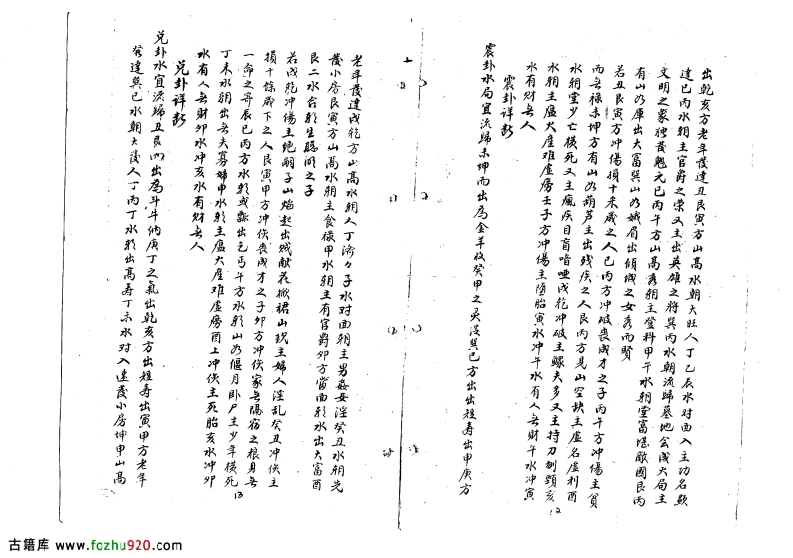 出乾亥方老年發達丑艮寅方山高水朝大旺人丁乙辰水对面入主功名顯
達巳丙水朝主官爵之荣又主出英雄之將巽丙水朝流歸墓地会成大局主
文明之象独發魁元巳丙午方山高秀朝主登科甲午水朝堂富堪敵國艮丙
有山为庫出大富巽山为娥眉出傾城之女秀而賢
若丑艮寅方冲傷損十来歲之人巳丙方冲破丧成才之子丙午方冲傷主貧
而無祿未坤方有山为葫芦主出残疾之人艮丙方見山空缺主虛名虛利酉
水朝堂少亡横死又主瘋疾目盲喑啞戌乾冲破主鰥夫多又主持刀刎頸亥
水朝主瘟火產难虛癆壬子方冲傷主墮胎寅水冲午水有人無財午水冲寅
水有財無人
震卦详新
震卦水局宜流歸未坤而出為金羊收癸甲之灵漢巽巳方出出短寿出甲庚方
12
老年發達戌乾方山高水朝人丁济々子水对面朝主男姦女淫癸丑水朝先
發小房艮寅方山高水朝主食祿甲水朝主有官爵卯方當面朝水出大富酉
艮二水合朝生聪明之子
若戌乾冲傷主绝嗣子山焰起出贱献花掀裙山現主婦人淫乱癸丑冲伤主
損十餘歲下之人艮寅甲方冲伤丧成才之子卯方冲伤家無隔宿之粮身無
一命之哥辰巳丙方水朝或瓢出乞丐午方水朝山为偃月卧尸主少年横死
丁未水朝出無夫寡婦申水朝主瘟火產难虛癆酉上冲伤主死胎亥水冲卯
水有人無財卯水冲亥水有財無人
兑卦详新
兑卦水宜流歸丑艮而出為斗牛纳庚丁之氣出乾亥方出短寿出寅甲方老年
發達巽巳水朝大發人丁丙丁水朝出高寿丁未水对入速發小房坤申山高
13
古籍库 www.fozhu920.com